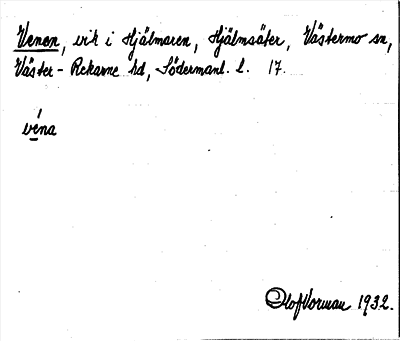 Venen, vik i Hjälmaren, Hjälmsäter, Västermo sn,
Väster-Rekarne hd, Södermanl. l. 17.
véna
Olof Norman 1932.